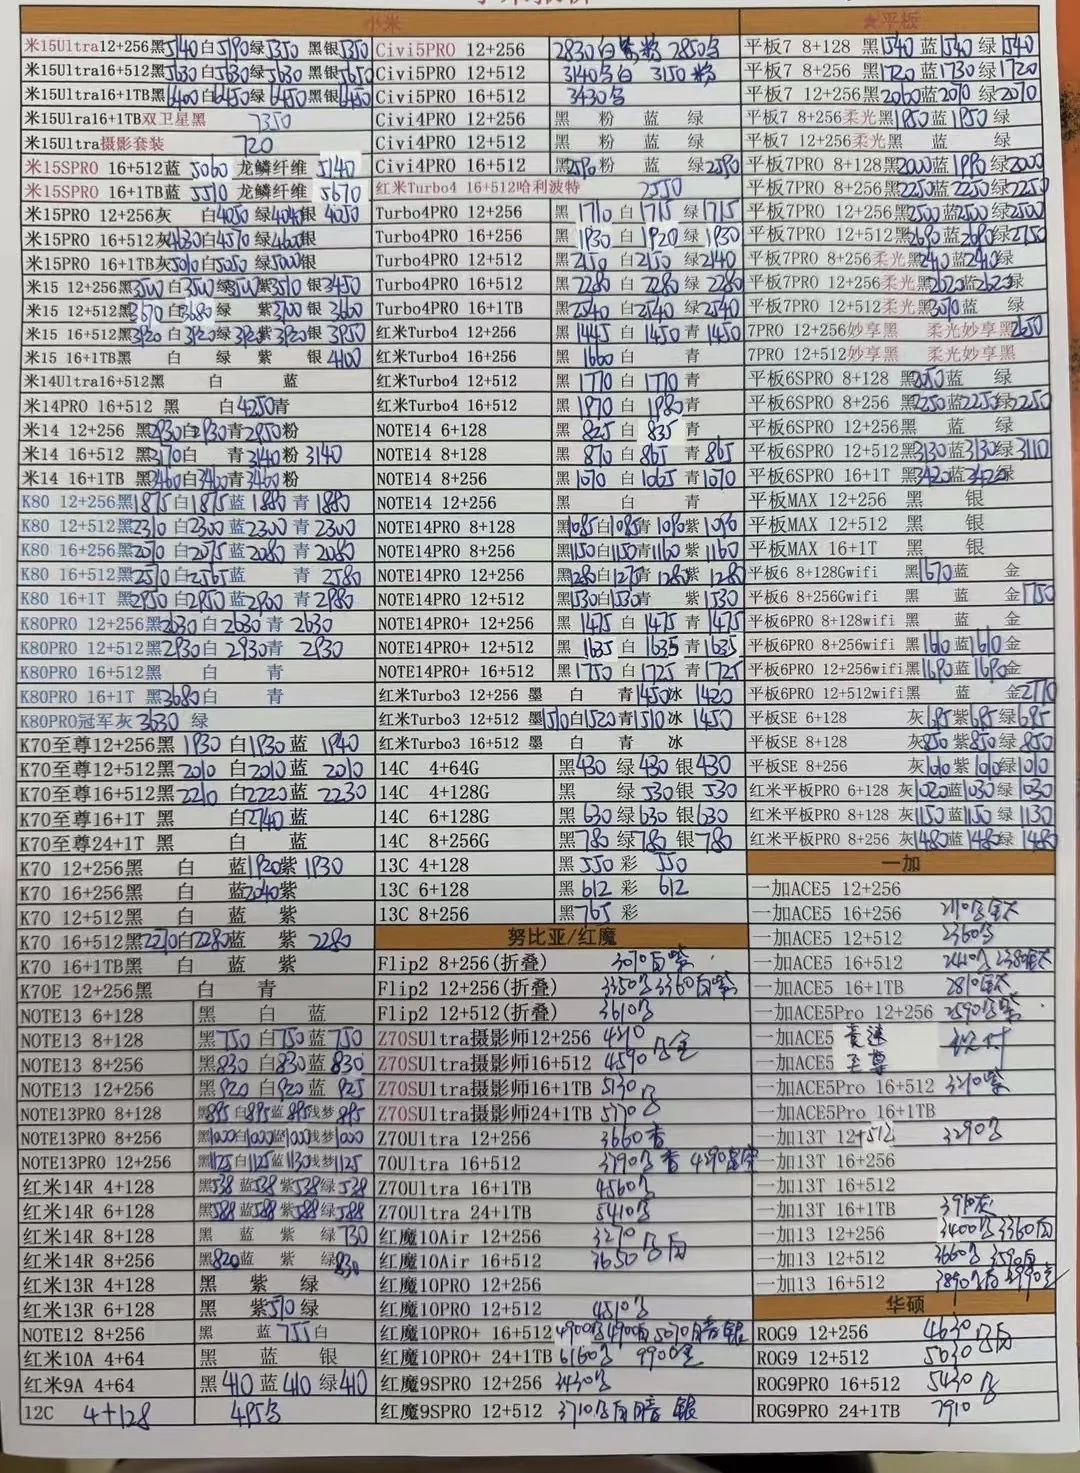 小米
米15Ultra12+256黑5140白5190绿5350 黑银5350
米15Ultra16+512黑5630白5630绿5630 黑银5650
米15Ultra16+1TB黑6400白6450绿6450 黑银6450
米15Ulra16+1TB双卫星黑 7350
米15Ultra摄影套装 720
米15SPRO 16+512蓝 5060 龙鳞纤维 5140
米15SPRO 16+1TB蓝 5510 龙鳞纤维 5670
米15PRO 12+256灰 白4050 绿4040银 4050
米15PRO 16+512灰4630白4570 绿4600银
米15PRO 16+1TB灰5010白5050 绿5000银
米15 12+256黑3500 白3500绿3500紫3510 银3450
米15 12+512黑3670白3680绿 紫3700 银3600
米15 16+512黑3920白3920绿3920紫3920 银3950
米15 16+1TB黑 白 绿 紫 银4100
米14Ultra16+512黑 白 蓝
米14PRO 16+512 黑 白4250青
米14 12+256 黑2930白2930青2950粉
米14 16+512 黑3170白 青3140粉 3140
米14 16+1TB 黑3460白3460青3460粉
K80 12+256黑1875白1875蓝1880青1880
K80 12+512黑2310白2300蓝2300青2300
K80 16+256黑2070白2075蓝2080青2080
K80 16+512黑2570白2565蓝 青2580
K80 16+1T 黑2950白2950蓝2900青2980
K80PRO 12+256黑2630白2630青2630
K80PRO 12+512黑2930白2930青2930
K80PRO 16+512黑 白 青
K80PRO 16+1T 黑3680白 青
K80PRO冠军灰3630 绿
K70至尊12+256黑 1930 白1930蓝 1940
K70至尊12+512黑2010 白2010蓝 2010
K70至尊16+512黑2210 白2220蓝 2230
K70至尊16+1T 黑 白2740蓝
K70至尊24+1T 黑 白 蓝
K70 12+256黑 白 蓝1920紫1930
K70 16+256黑 白 蓝2040紫
K70 12+512黑 白 蓝 紫
K70 16+512黑2270白2280蓝 紫 2280
K70 16+1TB黑 白 蓝 紫
K70E 12+256黑 白 青
NOTE13 6+128 黑 白 蓝
NOTE13 8+128 黑750白750蓝750
NOTE13 8+256 黑830 白830蓝830
NOTE13 12+256 黑920 白920蓝925
NOTE13PRO 8+128 黑895白895蓝895浅梦895
NOTE13PRO 8+256 黑1020白1020蓝1020浅梦1020
NOTE13PRO 12+256 黑1125白1125蓝1130浅梦1125
红米14R 4+128 黑538蓝538紫538绿538
红米14R 6+128 黑588蓝588紫588绿588
红米14R 8+128 黑 蓝 紫 绿730
红米14R 8+256 黑820蓝 紫 绿830
红米13R 4+128 黑 紫 绿
红米13R 6+128 黑 紫570绿
NOTE12 8+256 黑 蓝755白
红米10A 4+64 黑 蓝 银
红米9A 4+64 黑410 蓝410 绿410
12C 4+128 495
Civi5PRO 12+256 2830白紫粉 2850
Civi5PRO 12+512 3140 白 3150 粉
Civi5PRO 16+512 3430
Civi4PRO 12+256 黑 粉 蓝 绿
Civi4PRO 12+512 黑 粉 蓝 绿
Civi4PRO 16+512 黑2590粉 蓝 绿2590
红米Turbo4 16+512哈利波特 2550
Turbo4PRO 12+256 黑1710白1715绿1715
Turbo4PRO 16+256 黑1930白1920绿1930
Turbo4PRO 12+512 黑2150白2150绿2140
Turbo4PRO 16+512 黑2280白2280绿2280
Turbo4PRO 16+1TB 黑2540白2540绿2540
红米Turbo4 12+256 黑1445白1450青1450
红米Turbo4 16+256 黑1660 白 青
红米Turbo4 12+512 黑1770白1770青
红米Turbo4 16+512 黑1970白1980青
NOTE14 6+128 黑825白835青
NOTE14 8+128 黑870白865青865
NOTE14 8+256 黑1070白1065青1070
NOTE14 12+256 黑 白 青
NOTE14PRO 8+128 黑1085白1085青1090紫1090
NOTE14PRO 8+256 黑1150白1150青1160紫1160
NOTE14PRO 12+256 黑1280白1275青1280紫1280
NOTE14PRO 12+512 黑1530白1530青 紫1530
NOTE14PRO+ 12+256 黑1475白1475青1475
NOTE14PRO+ 12+512 黑1635白1635青1635
NOTE14PRO+ 16+512 黑1750白1725青1725
红米Turbo3 12+256 墨 白 青1450冰 1420
红米Turbo3 12+512 墨1510白1520青1510冰 1450
红米Turbo3 16+512 墨 白 青 冰
14C 4+64G 黑430 绿430银430
14C 4+128G 黑 绿530银530
14C 6+128G 黑630绿630银630
14C 8+256G 黑780绿780银780
13C 4+128 黑550彩 550
13C 6+128 黑612彩 612
13C 8+256 黑765彩
努比亚/红魔
Flip2 8+256(折叠) 3070白紫
Flip2 12+256(折叠) 3350 3360白紫
Flip2 12+512(折叠) 3610
Z70SUltra摄影师12+256 4210
Z70SUltra摄影师16+512 4590
Z70SUltra摄影师16+1TB 5130
Z70SUltra摄影师24+1TB 5170
Z70Ultra 12+256 3660
70Ultra 16+512 3990
Z70Ultra 16+1TB 4560
Z70Ultra 24+1TB 5410
红魔10Air 12+256 3270
红魔10Air 16+512 3650
红魔10PRO 12+256
红魔10PRO 12+512 4510
红魔10PRO+ 16+512 4900 4900 5070 暗 银
红魔10PRO+ 24+1TB 6160 9900
红魔9SPRO 12+256 3430
红魔9SPRO 12+512 3710 白暗 银
★平板
平板7 8+128 黑1540蓝1540绿1540
平板7 8+256 黑1720蓝1730绿1720
平板7 12+256黑2060蓝2070绿2070
平板7 8+256柔光黑1950蓝1950绿
平板7 12+256柔光黑 蓝 绿
平板7PRO 8+128黑2000蓝1990绿2000
平板7PRO 8+256黑2250蓝2250绿2250
平板7PRO 12+256黑2500蓝2500绿2500
平板7PRO 12+512黑2690蓝2690绿2750
平板7PRO 8+256柔光黑2410蓝2410绿
平板7PRO 12+256柔光黑2620蓝2620绿
平板7PRO 12+512柔光黑3070蓝 绿
7PRO 12+256妙享黑 柔光妙享黑2650
7PRO 12+512妙享黑 柔光妙享黑
平板6SPRO 8+128 黑2050蓝 绿
平板6SPRO 8+256 黑2250蓝2250绿2250
平板6SPRO 12+256黑 蓝 绿
平板6SPRO 12+512黑3130蓝3130绿3110
平板6SPRO 16+1T 黑3420蓝3420绿
平板MAX 12+256 黑 银
平板MAX 12+512 黑 银
平板MAX 16+1T 黑 银
平板6 8+128Gwifi 黑1670蓝 金
平板6 8+256Gwifi 黑 蓝 金1750
平板6PRO 8+128wifi 黑 蓝 金
平板6PRO 8+256wifi黑1610蓝1610金
平板6PRO 12+256wifi黑1690蓝1690金
平板6PRO 12+512wifi黑 蓝 金2770
平板SE 6+128 灰685紫685绿685
平板SE 8+128 灰850紫850绿850
平板SE 8+256 灰1010紫1010绿1010
红米平板PRO 6+128 灰1020蓝1030绿1030
红米平板PRO 8+128 灰1150蓝1150绿1130
红米平板PRO 8+256 灰1480蓝1480绿1480
一加
一加ACE5 12+256
一加ACE5 16+256 2110 钛
一加ACE5 12+512 2360
一加ACE5 16+512 2440 2380钛
一加ACE5 16+1TB 2810 钛
一加ACE5Pro 12+256 2590 紫
一加ACE5 竞速
一加ACE5 至尊
一加ACE5Pro 16+512 3210紫
一加ACE5Pro 16+1TB
一加13T 12+512 3290
一加13T 16+256
一加13T 16+512
一加13T 16+1TB 3980灰
一加13 12+256 3400 3360白
一加13 12+512 3660 3590白
一加13 16+512 3890 白 3990
华硕
ROG9 12+256 4630 白
ROG9 12+512 5030
ROG9PRO 16+512 5430
ROG9PRO 24+1TB 7910